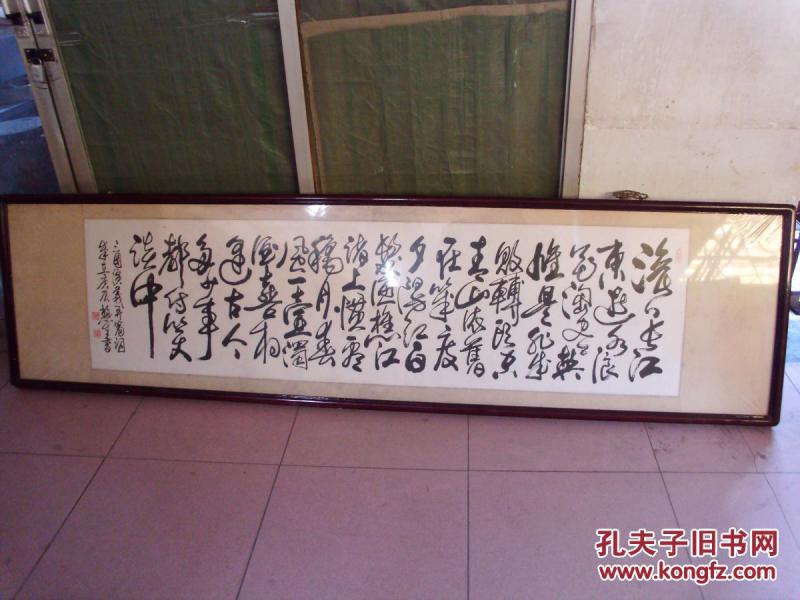 滚〻长江
东逝水浪
花淘尽英
雄是非成
败轉头空
青山依旧
在几度
夕阳江白
发渔樵江
渚上惯看
穐月春
风一壶浊
酒喜相
逢古今
多少事
都付笑
谈中
三国演义开篇词
孔夫子旧书网
www.kongfz.com